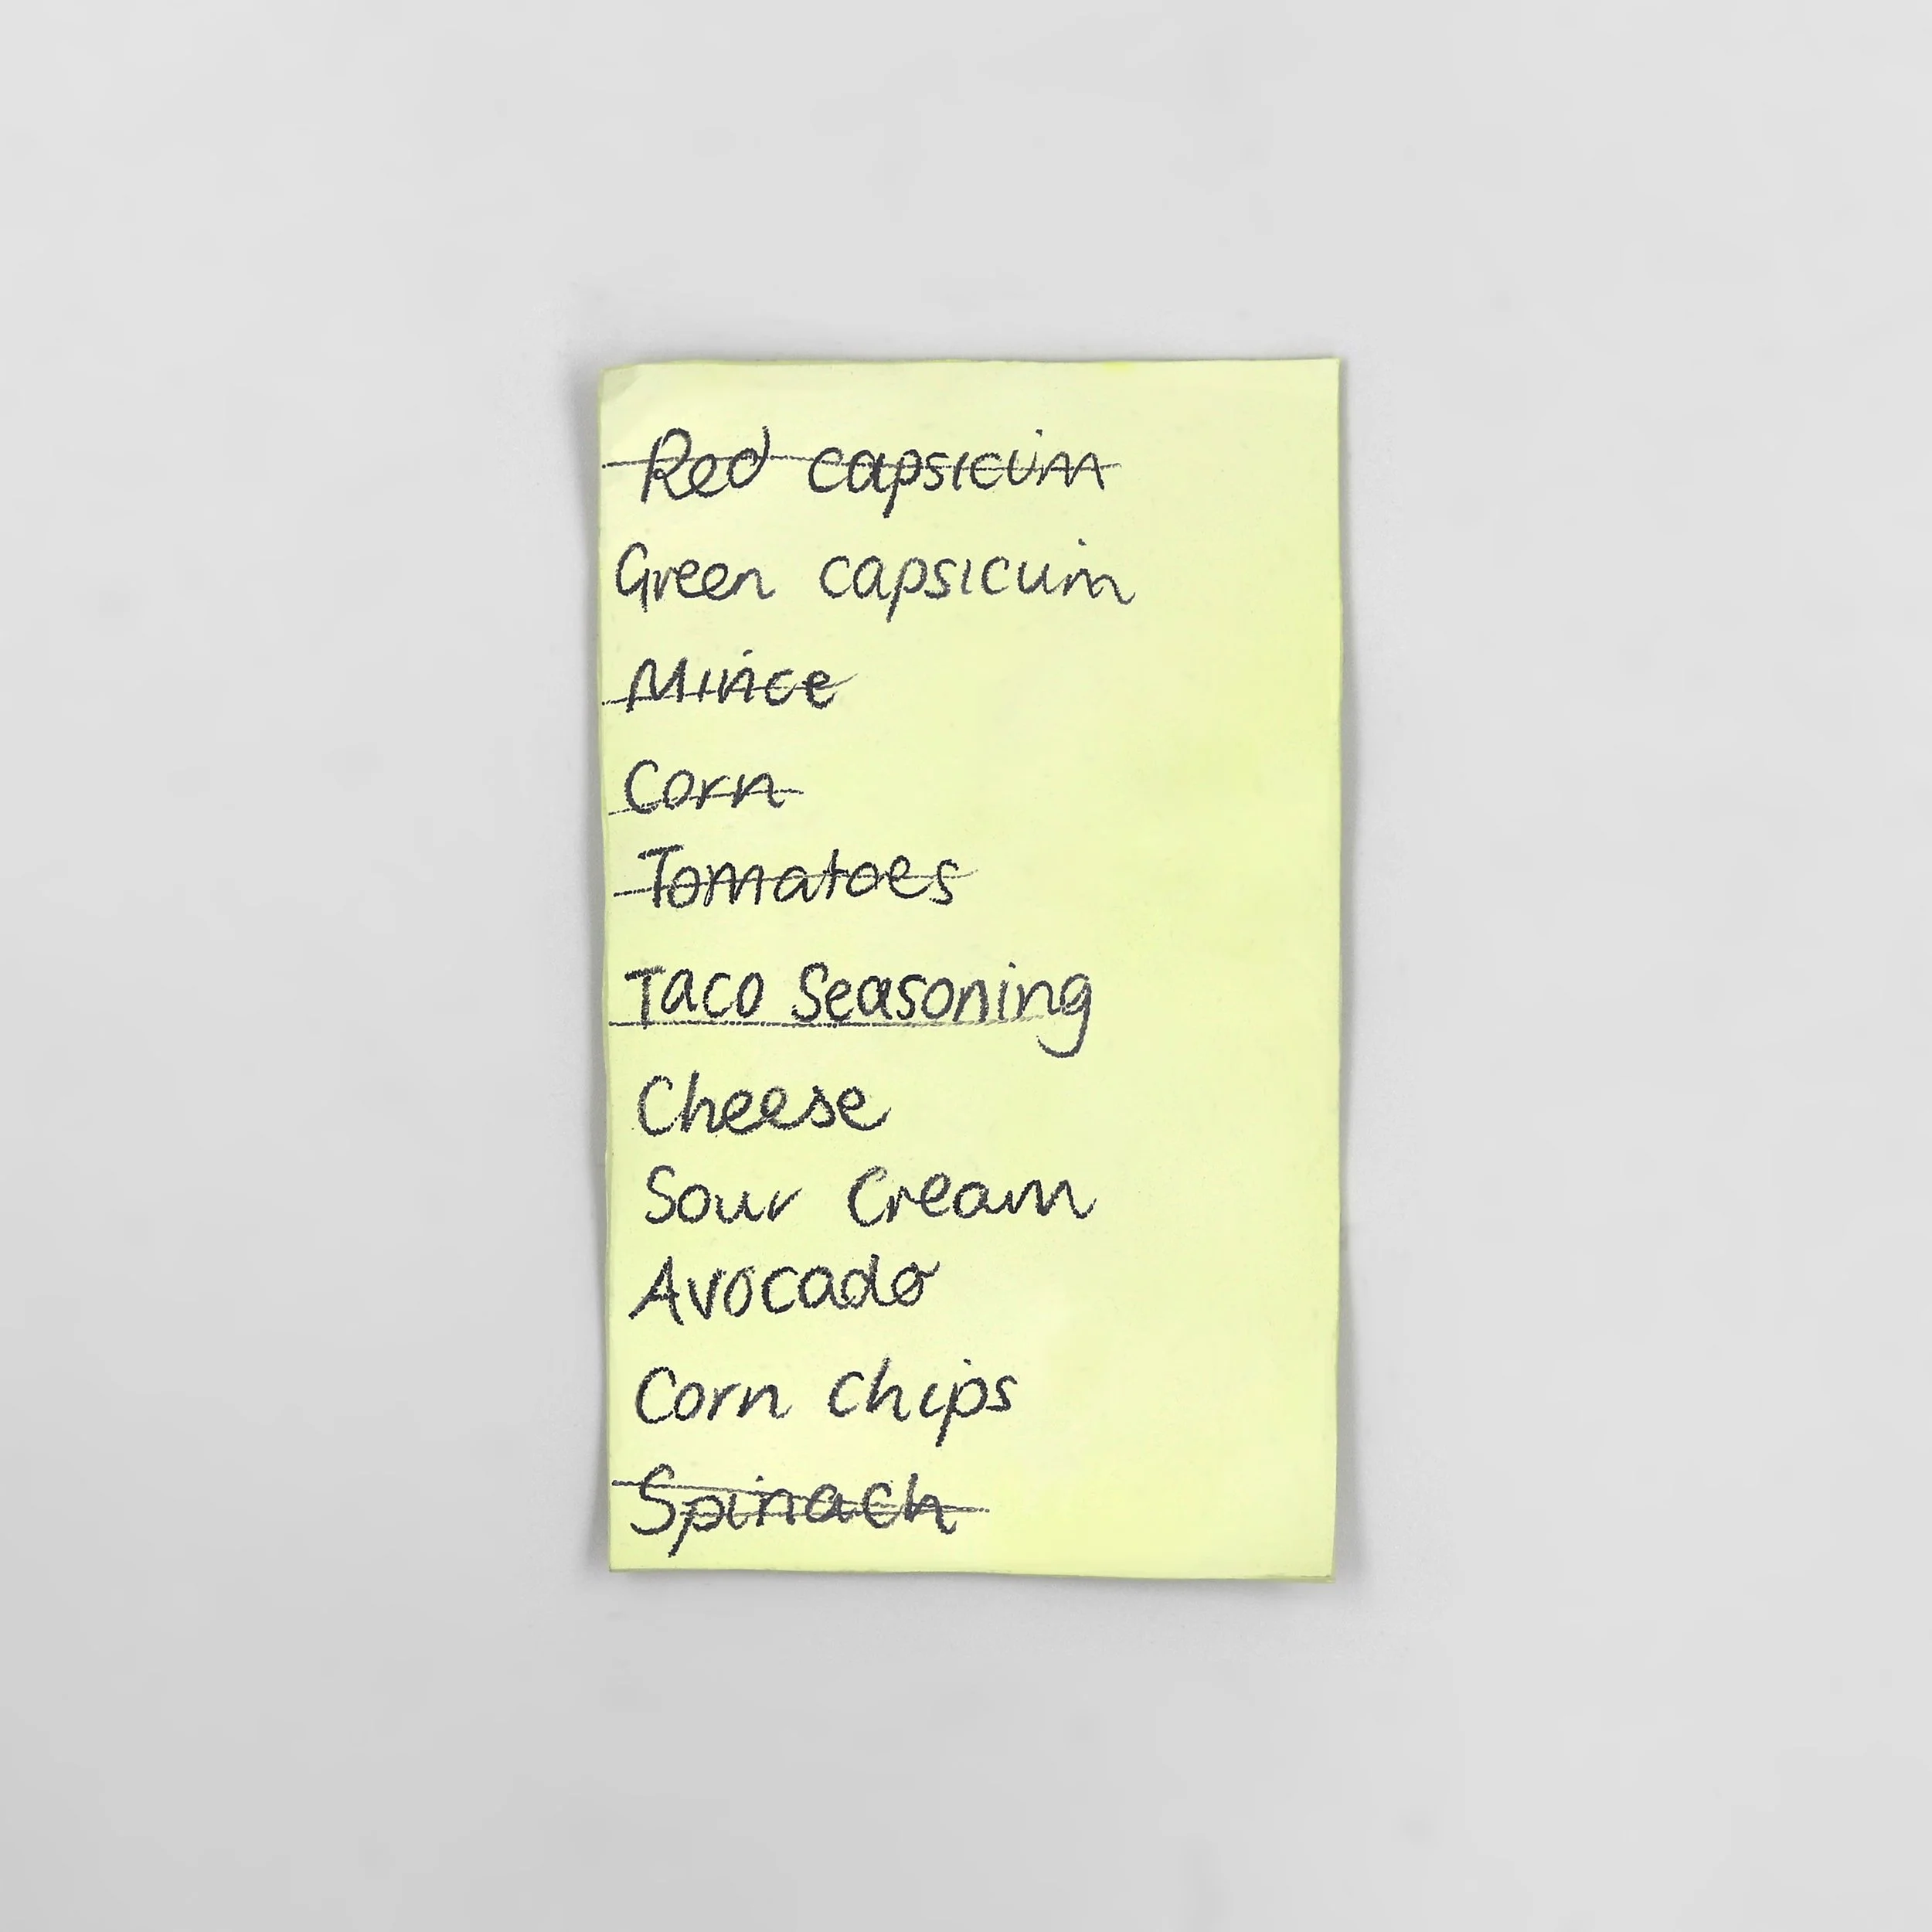 Red capsicum
Green capsicum
Mince
Corn
Tomatoes
Taco Seasoning
Cheese
Sour Cream
Avocado
Corn chips
Spinach